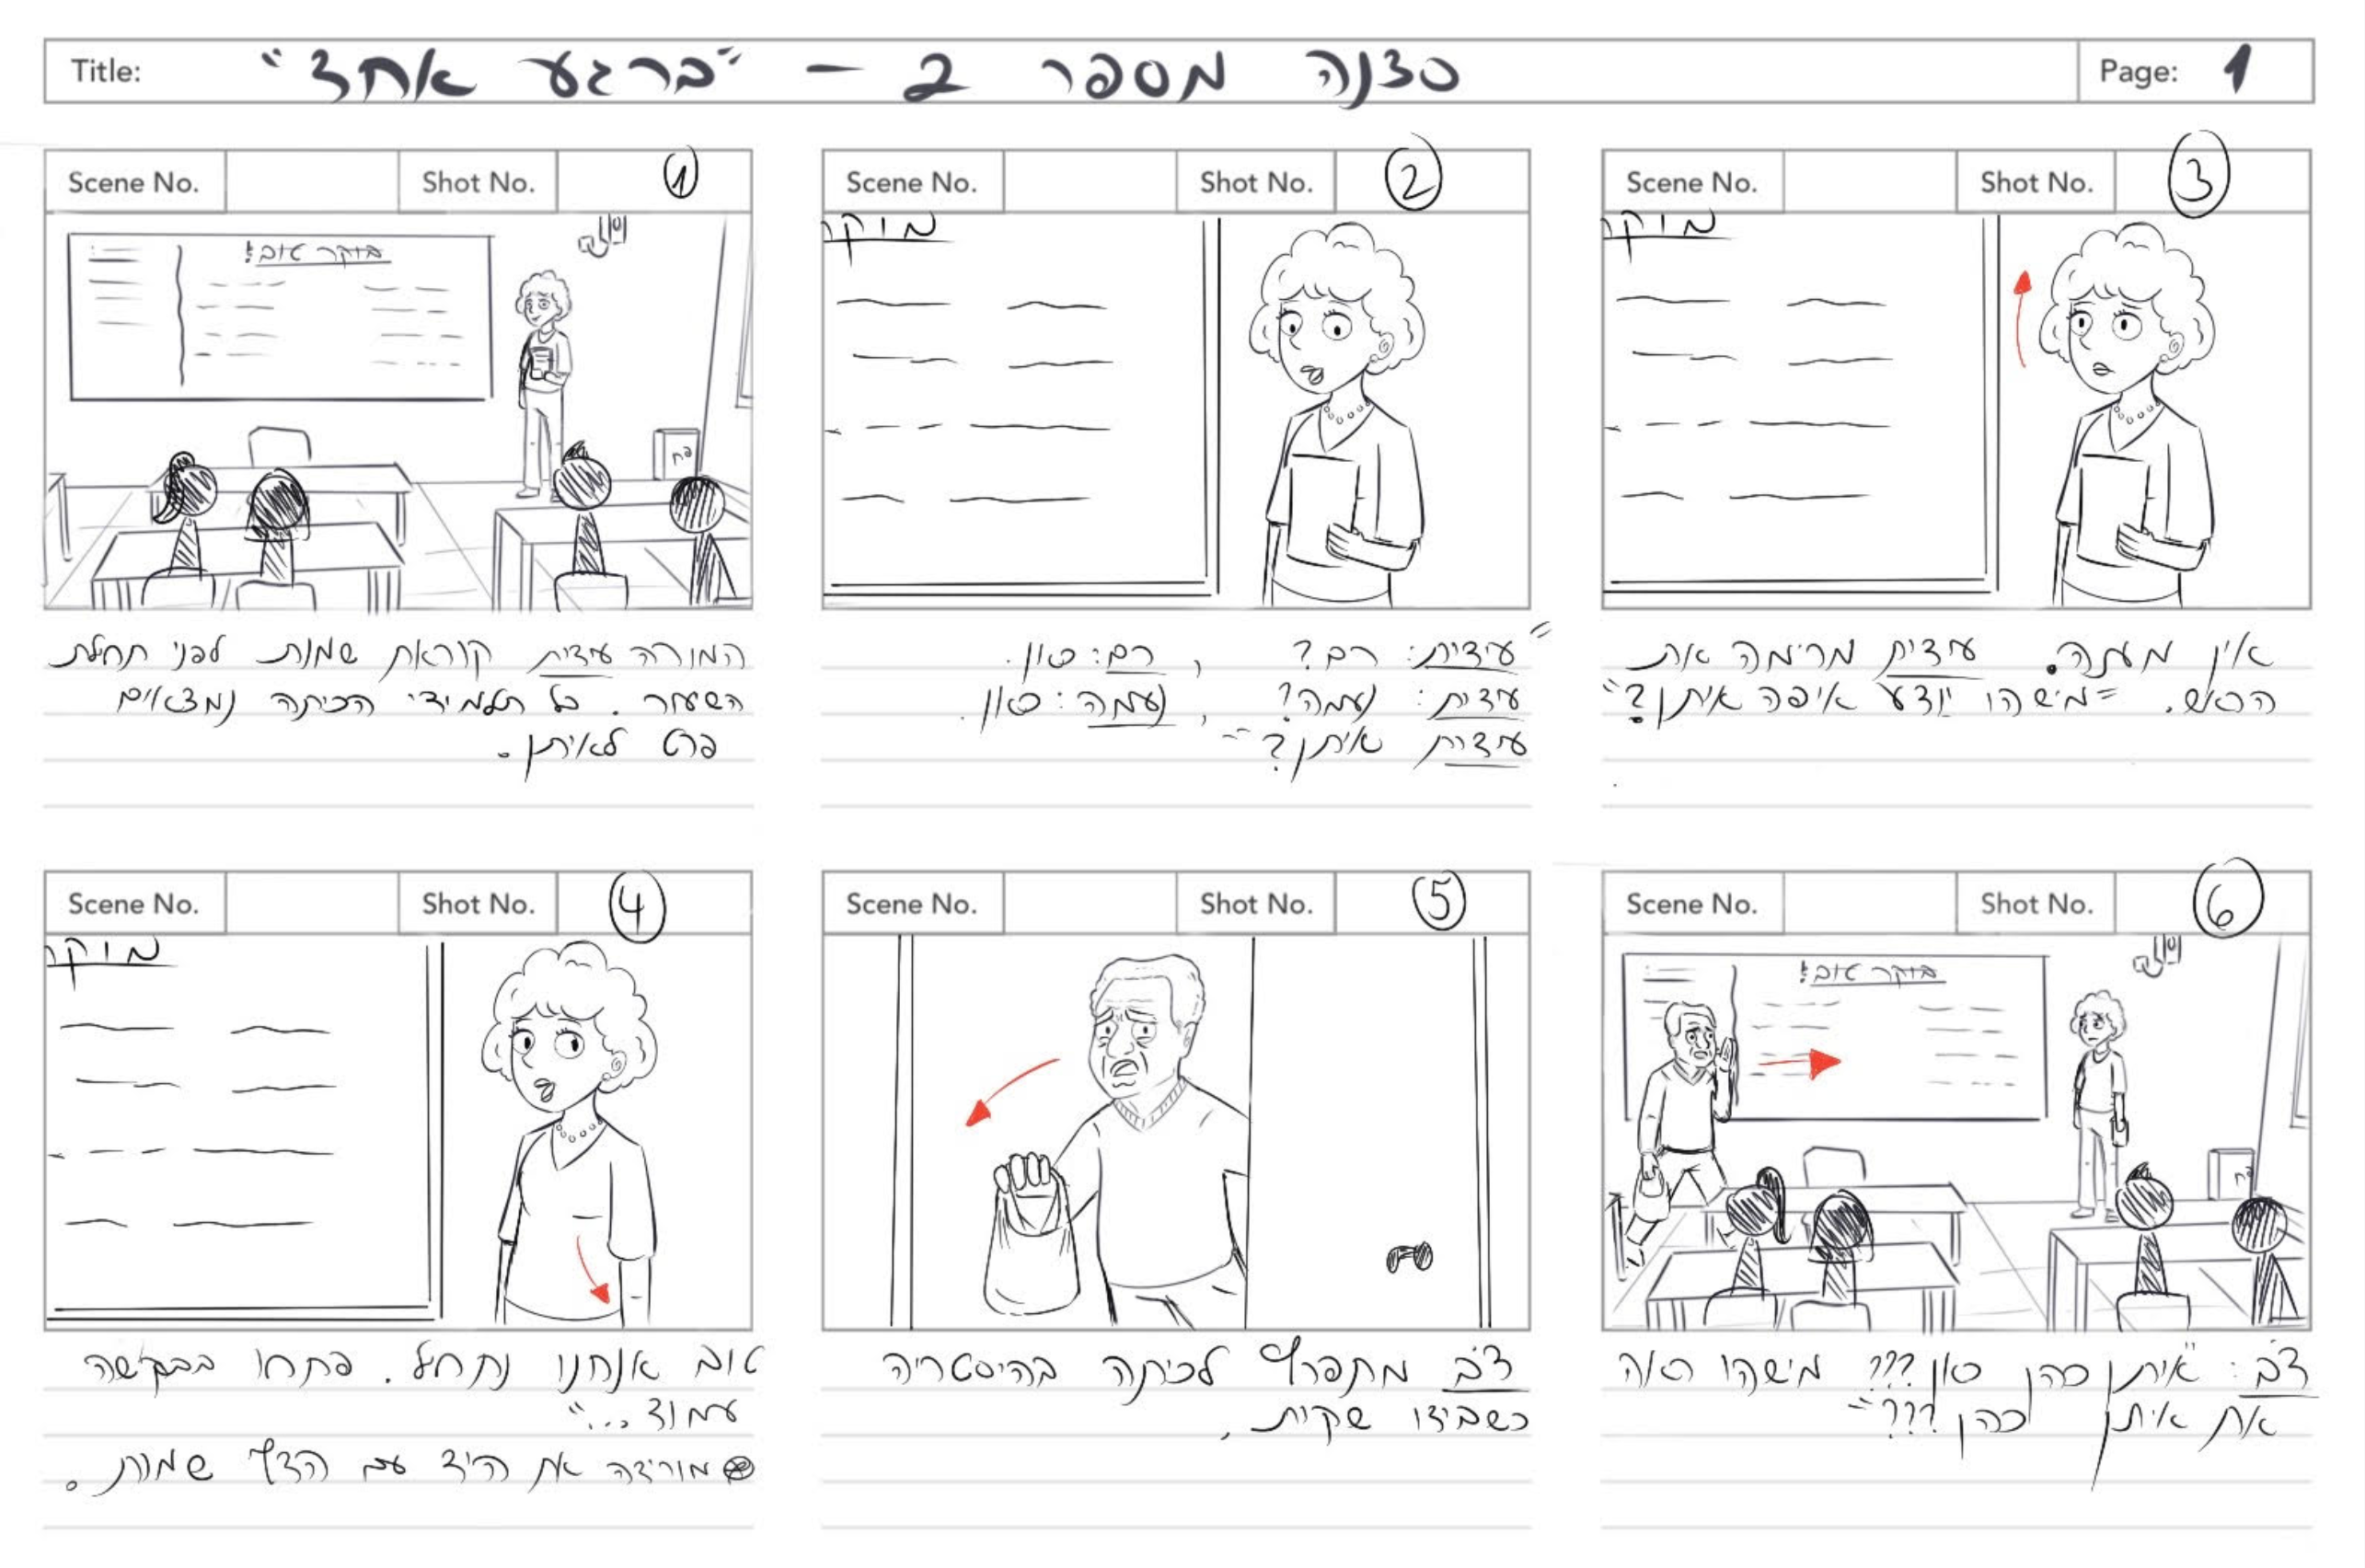 Title: סצנה מספר 2 – "ברגע אחד"
Page: 1
Scene No. Shot No. 1
בוקר טוב!
פח
המורה עידית קוראת שמות לפני תחילת
השיעור. כל תלמידי הכיתה נמצאים
פרט לאיתן.
Scene No. Shot No. 2
בוקר
"עידית: רם? , רם: כאן.
עידית: נעמה? , נעמה: כאן.
עידית איתן?"
Scene No. Shot No. 3
בוקר
אין מענה. עידית מרימה את
הראש. "מישהו יודע איפה איתן?"
Scene No. Shot No. 4
בוקר
טוב אנחנו נתחיל. פתחו בבקשה
עמוד ..."
מורידה את היד עם הדף שמות.
Scene No. Shot No. 5
דב מתפרץ לכיתה בהיסטריה
כשבידו שקית.
Scene No. Shot No. 6
בוקר טוב!
פח
דב: "איתן כהן כאן??? מישהו ראה
את איתן כהן???"